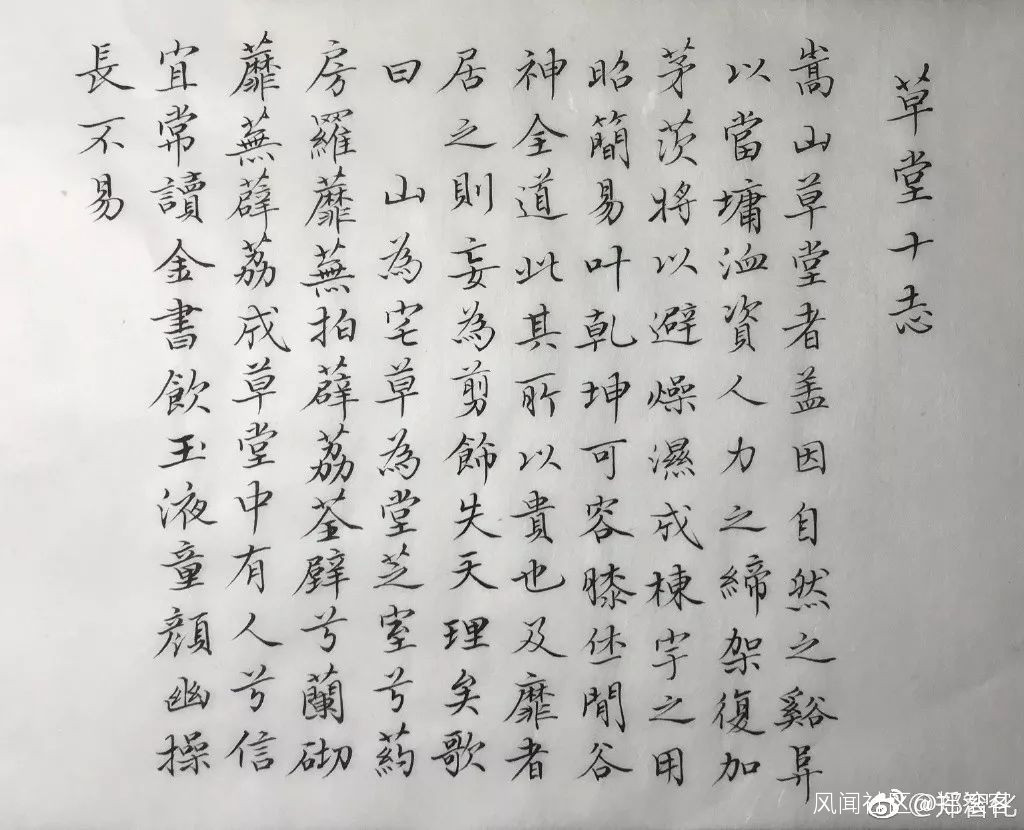 草堂十志
嵩山草堂者盖因自然之谿
以當墉洫資人力之締架復加
茅茨將以避燥濕成棟宇之用
昭簡易叶乾坤可容膝休閒谷
神全道此其所以貴也及靡者
居之則妄為剪飾失天理矣歌
曰 山為宅草為堂芝室兮葯
房羅蘼蕪拍薜荔荃壁兮蘭砌
蘼蕪薜荔成草堂中有人兮信
宜常讀金書飲玉液童顏幽操
長不易
风闻社区